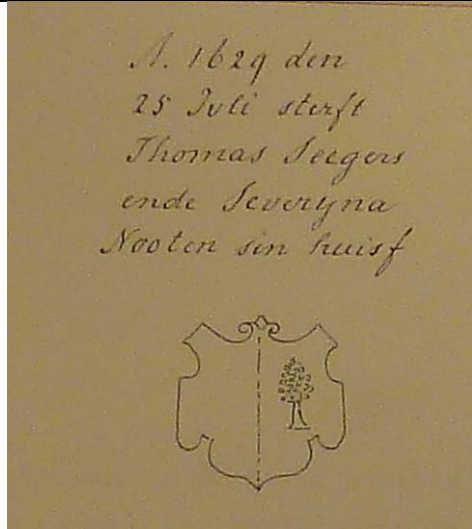 A. 1629 den
25 Juli sterft
Thomas Seegers
ende Severyna
Nooten sin huisf